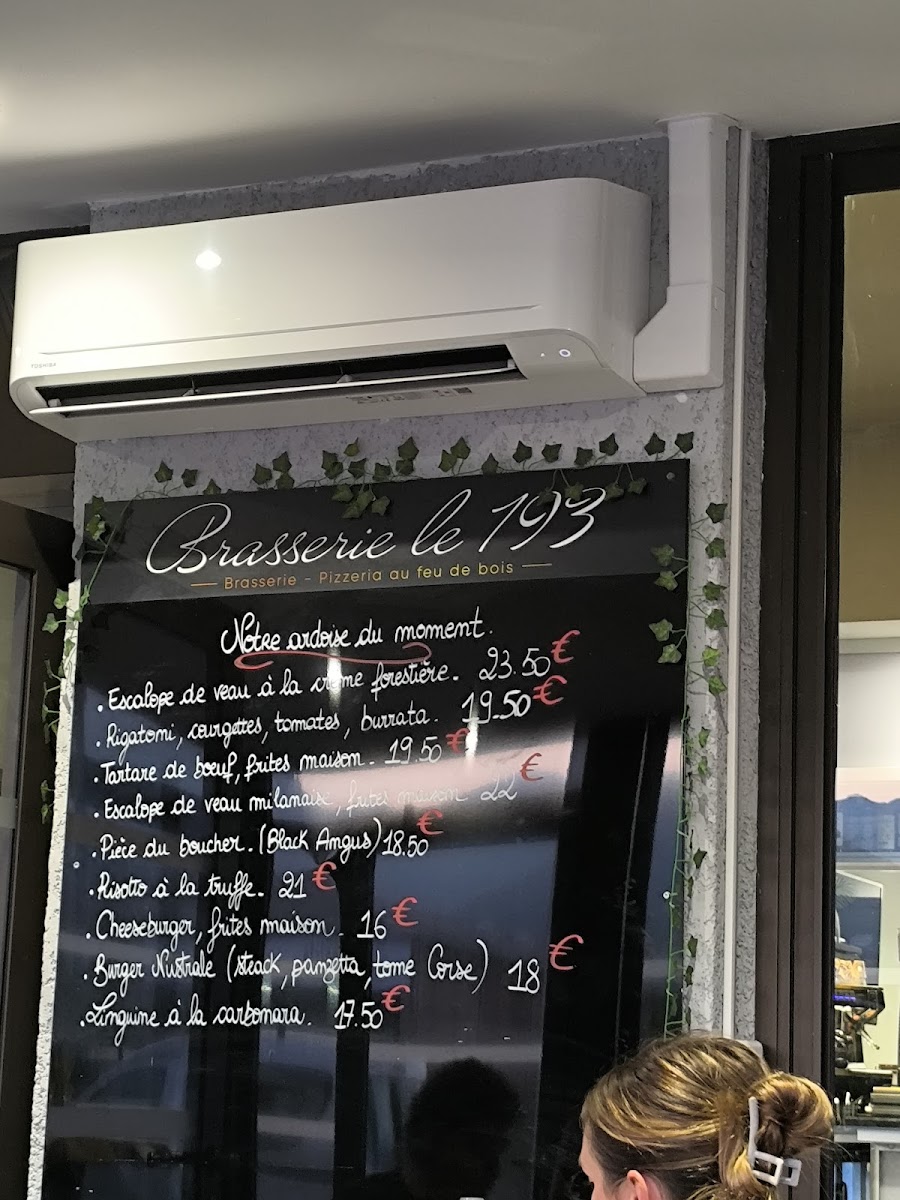 TOSHIBA
Brasserie le 193
Brasserie - Pizzeria au feu de bois
Notre ardoise du moment.
. Escalope de veau à la crème forestière. 23.50€
. Rigatoni, courgettes, tomates, burrata. 19.50€
. Tartare de bœuf, frites maison. 19.50€
. Escalope de veau milanaise, frites maison 22€
. Pièce du boucher. (Black Angus) 18.50€
. Risotto à la truffe. 21€
. Cheeseburger, frites maison. 16€
. Burger Nustrale (steack, panzetta, tome Corse) 18€
. Linguine à la carbonara. 17.50€